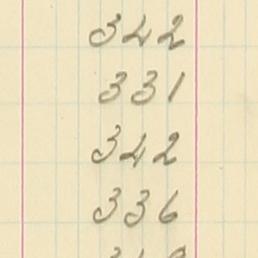 342
331
342
336